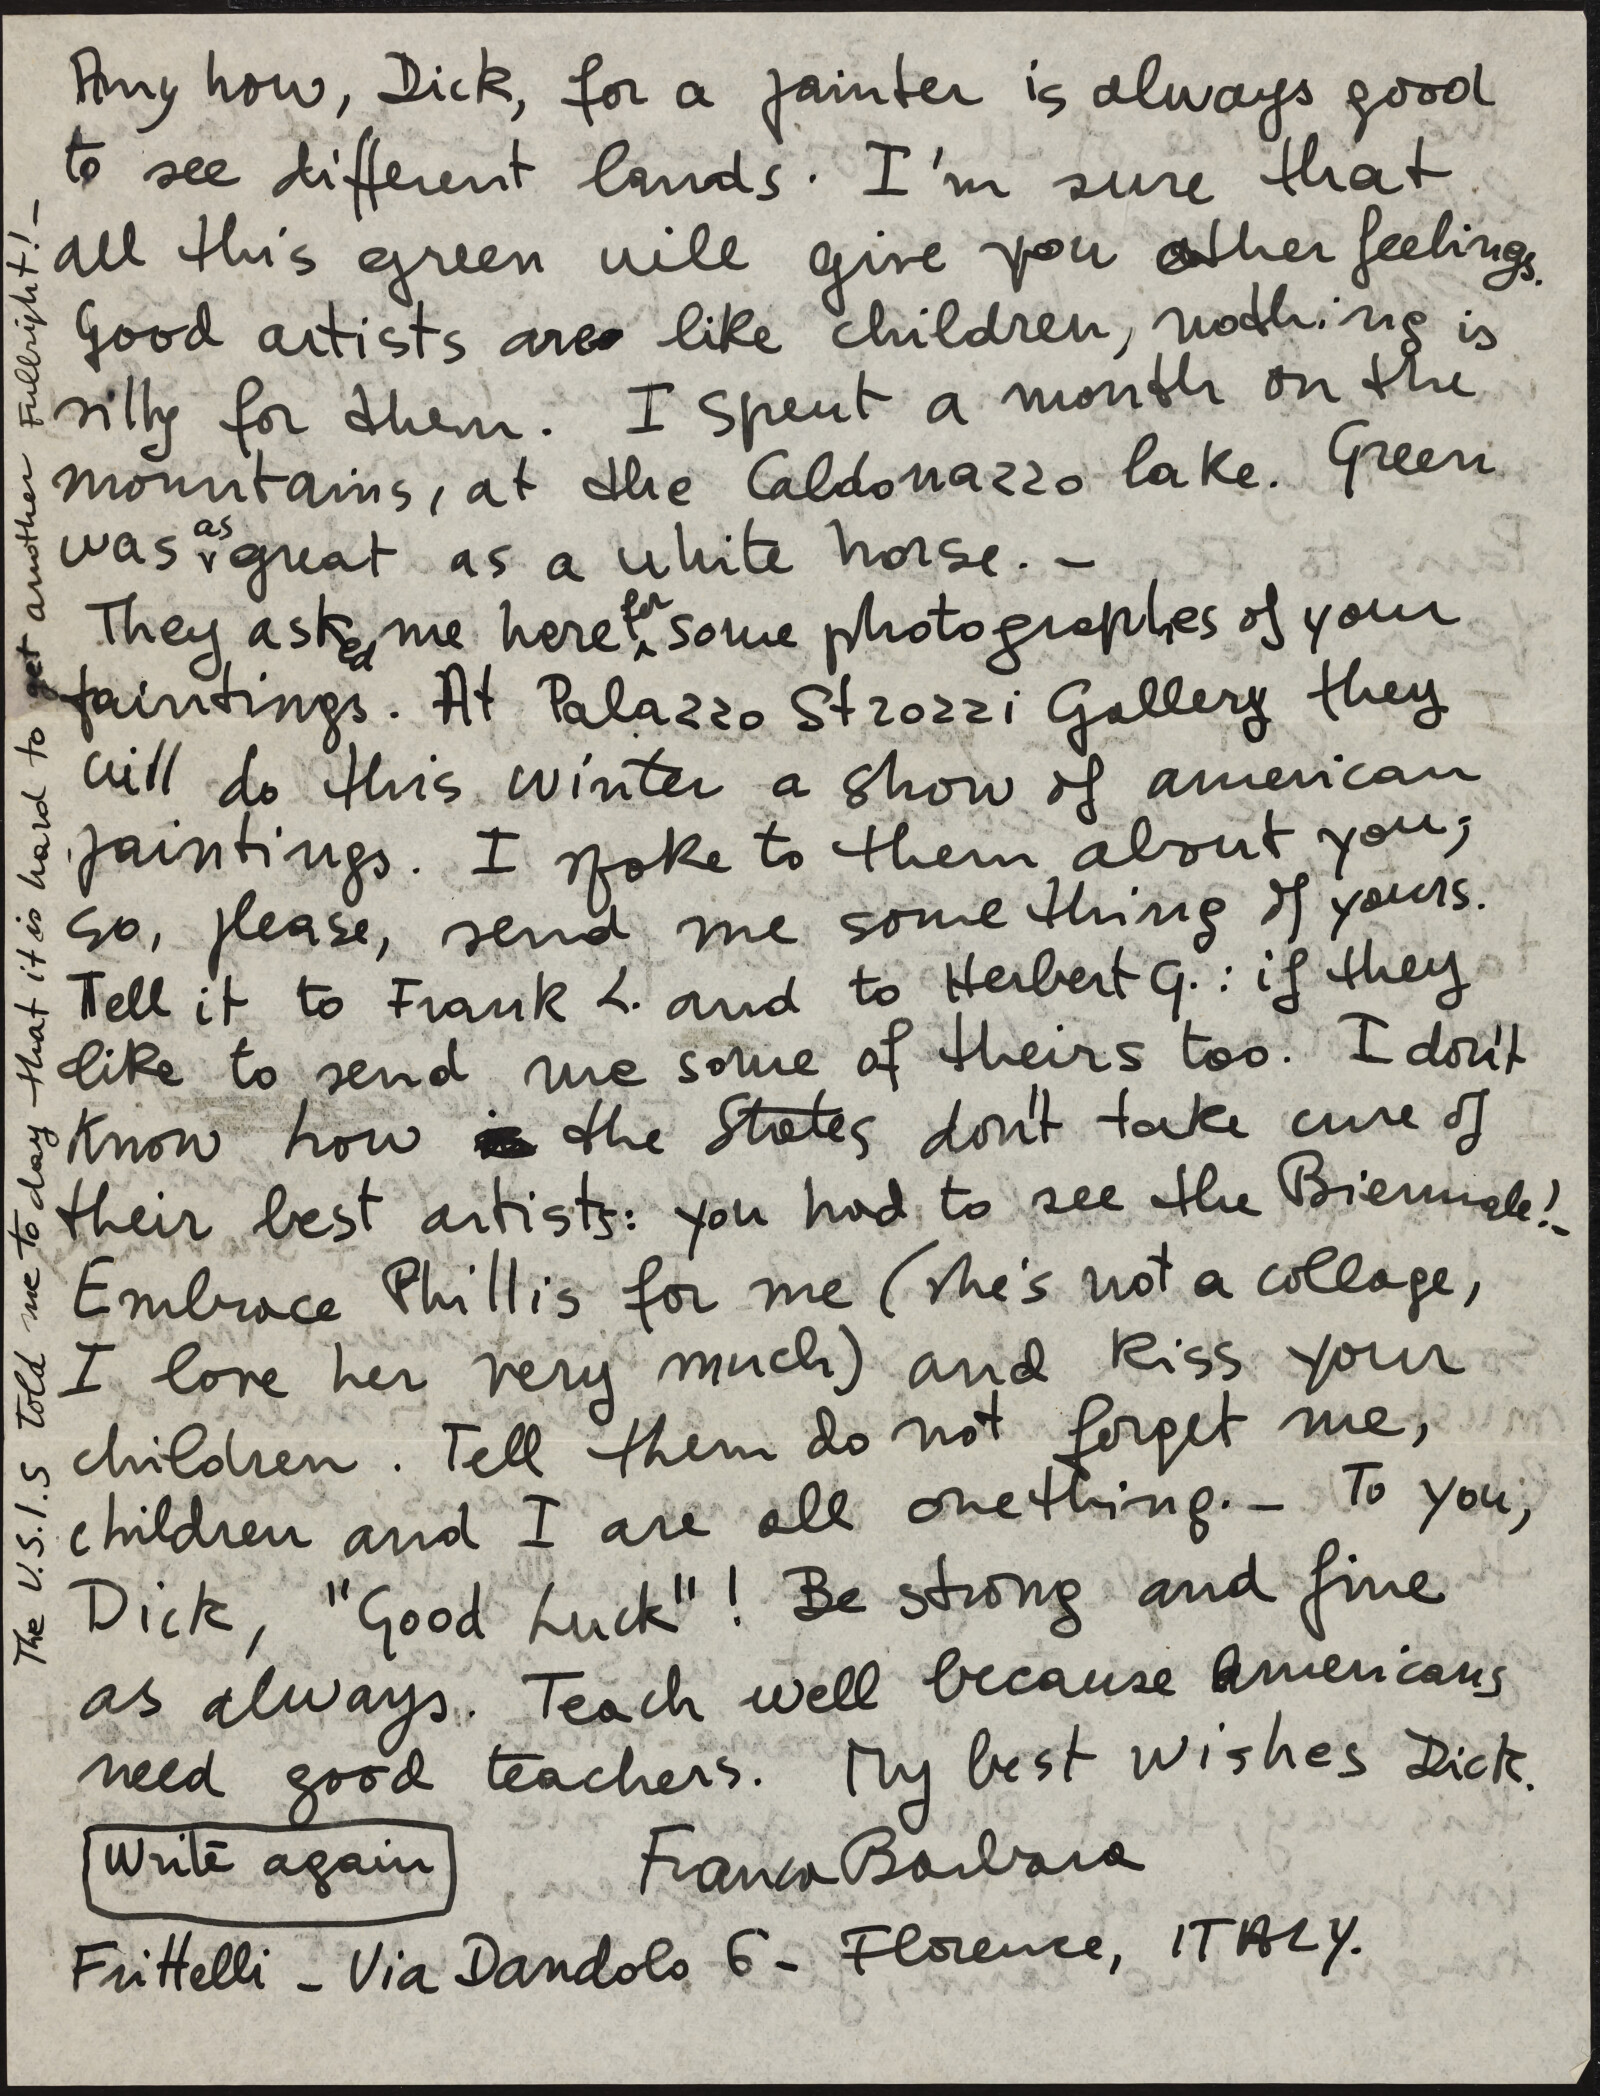 Any how, Dick, for a painter is always good
to see different lands. I'm sure that
all this green will give you other feelings.
Good artists are like children, nothing is
silly for them. I spent a month on the
mountains, at the Caldonazzo lake. Green
was as great as a white horse. –
They asked me here for some photographes of your
paintings. At Palazzo Strozzi Gallery they
will do this winter a show of american
paintings. I spoke to them about you;
so, please, send me something of yours.
Tell it to Frank L. and to Herbert G.: if they
like to send me some of theirs too. I don't
Know how the States don't take cure of
their best artists: you had to see the Biennale! –
Embrace Phillis for me (she's not a collage,
I love her very much) and Kiss your
children. Tell them do not forget me,
children and I are all one thing. – To you,
Dick, "Good Luck"! Be strong and fine
as always. Teach well because Americans
need good teachers. My best wishes Dick.
Write again
Franco Barbara
Frittelli – Via Dandolo 6 – Florence, ITALY.
The U.S.I.S told me to day that it is hard to get another Fulbright! –